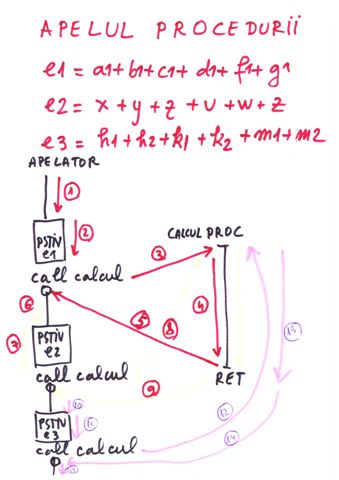 APELUL PROCEDURII
e1 = a1+b1+c1+d1+f1+g1
e2 = x+y+z+u+w+z
e3 = h1+h2+k1+k2+m1+m2
APELATOR
1
2
PSTIV e1
CALCUL PROC
call calcul
3
6
4
5
8
7
PSTIV e2
13
call calcul
RET
9
10
11
PSTIV e3
12
call calcul
14
15